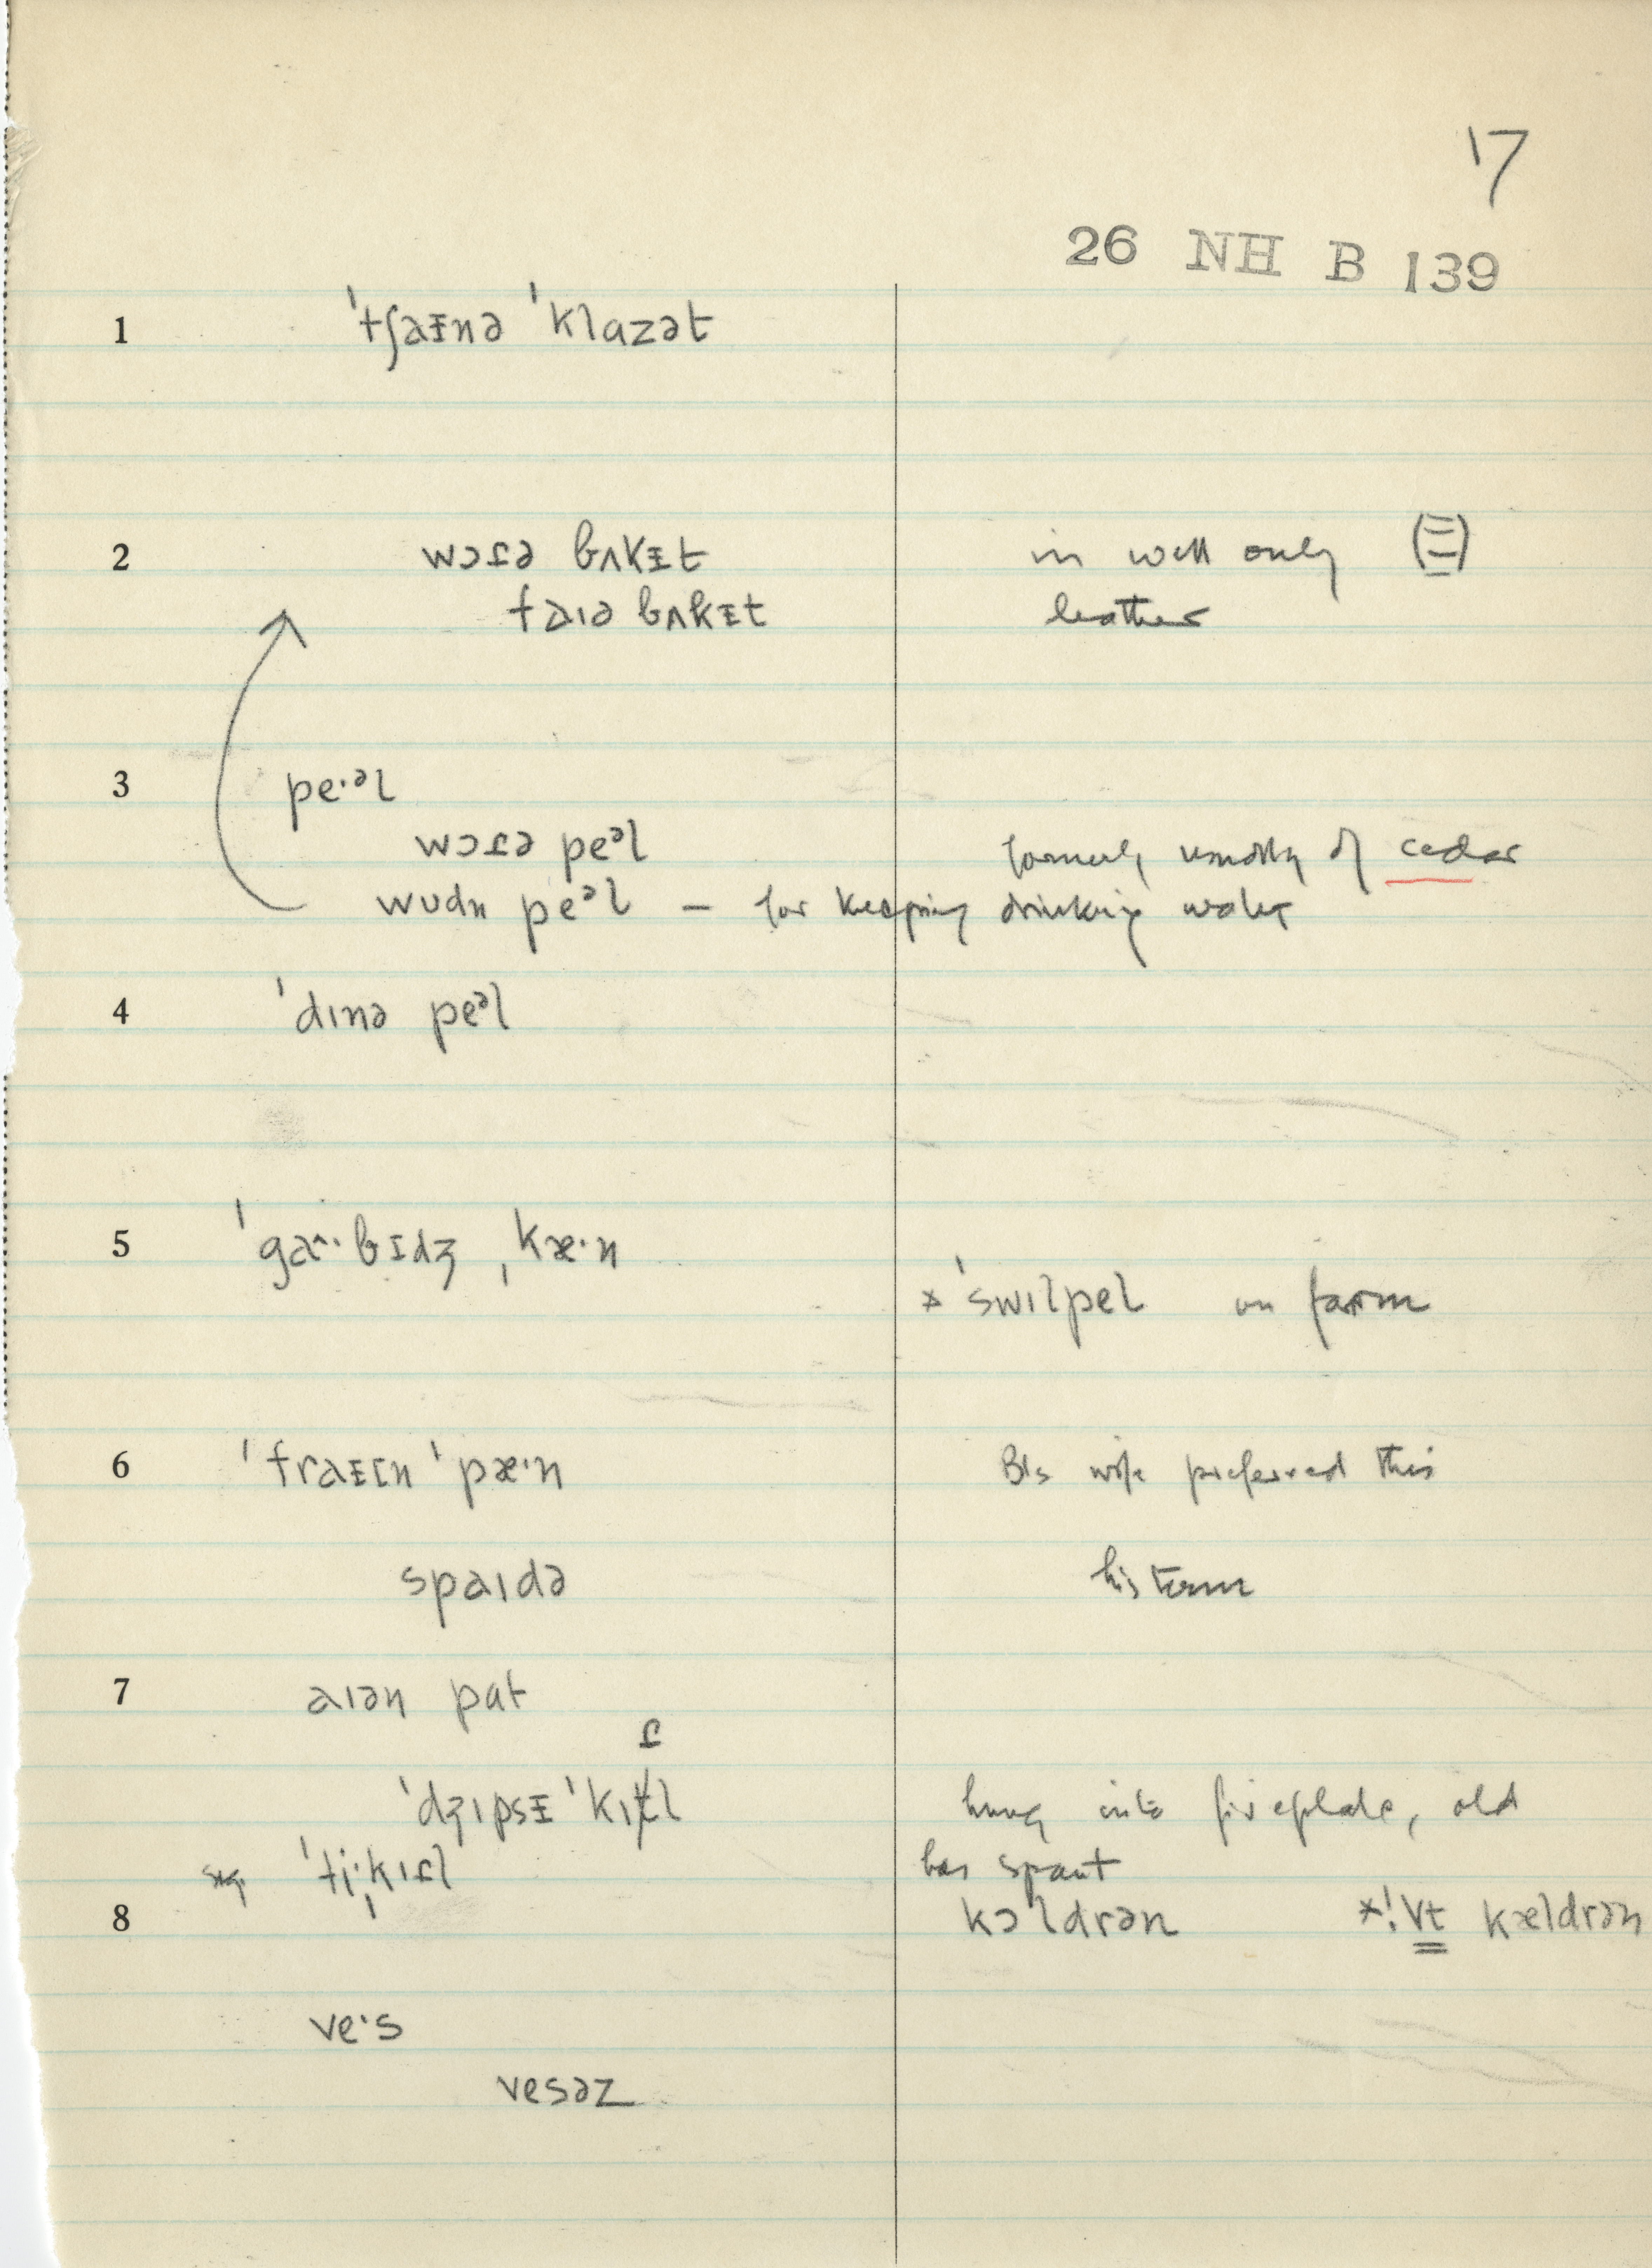 17
26 NH B 139
1 ˈtʃaᵻnə ˈklɑzət
2 wɔɾə bʌkᵻt in well only
faɪə bʌkᵻt leather
3 pe·ᵊl
wɔɾə peᵊl formerly usually of cedar
wʊdn peᵊl – for keeping drinking water
4 ˈdɪnə peᵊl
5 ˈga^·bɪdʒ ˌkæ·n
×ˈswɪlpel on farm
6 ˈfraᵻɪn ˈpæ·n B's wife preferred this
spaɪdə his term
7 aɪən pɑt
ɾ
ˈdʒɪpsᵻ ˈkɪtl hung into fireplace, old
ˈti·ˌkɪɾl has spout
8 kɔldrən ×! Vt kældrən
ve·s
vesəz